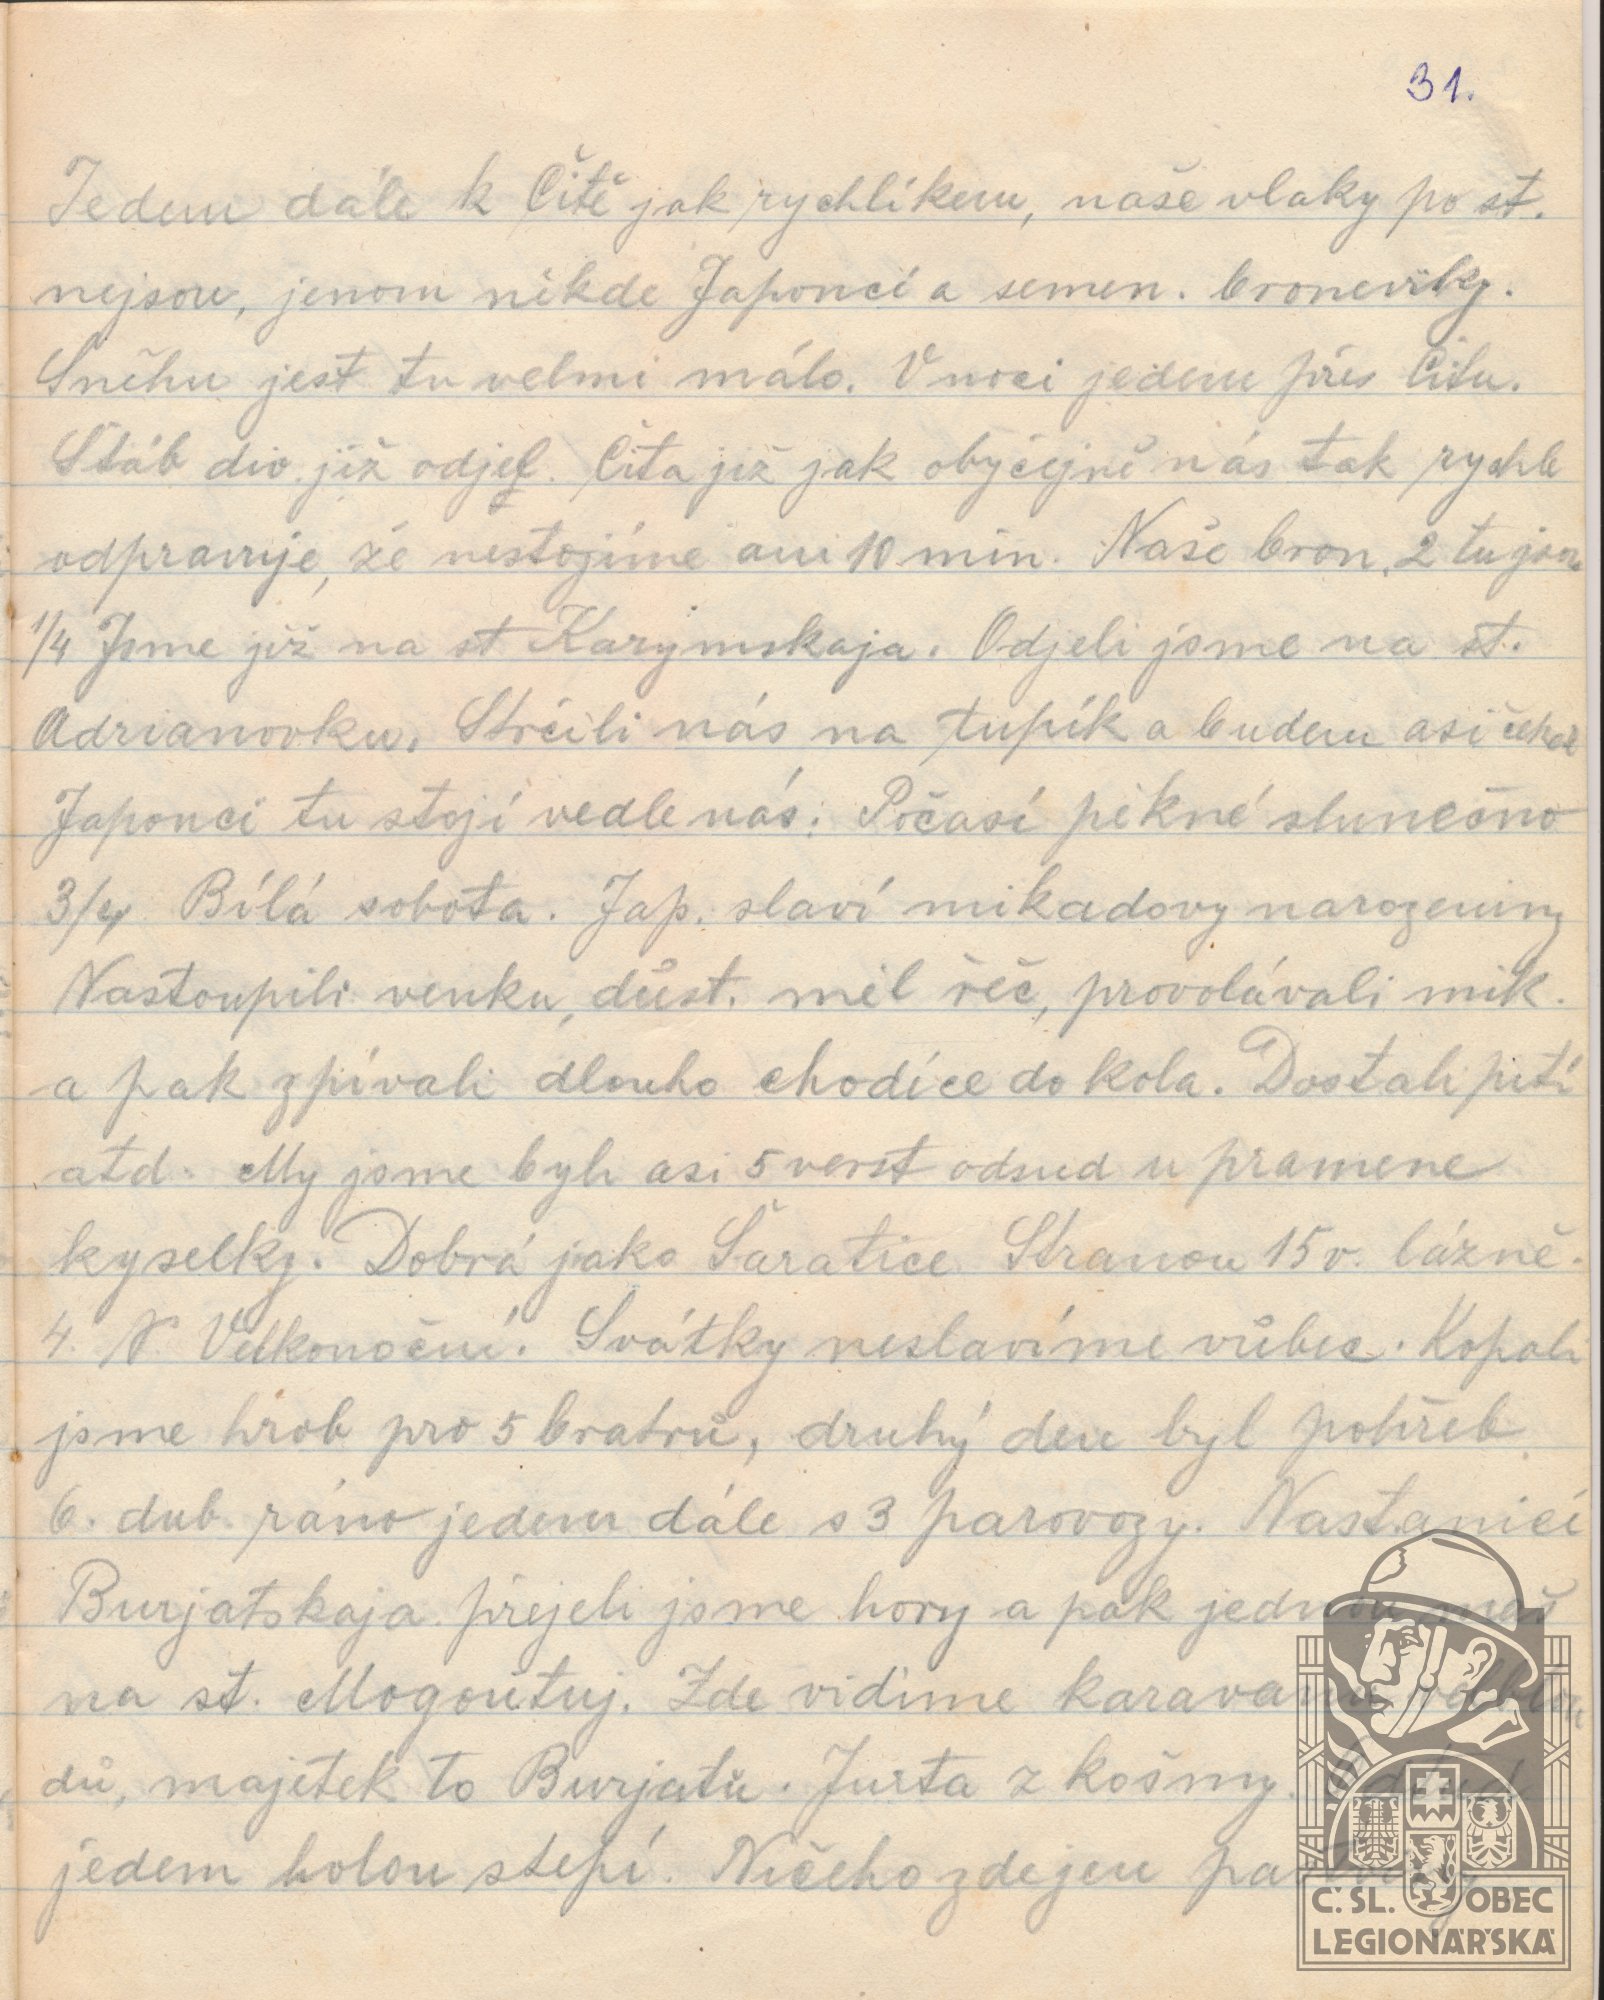 31.
Jedem dále k Čitě jak rychlíkem, naše vlaky po st.
nejsou, jenom někde Japonci a semen. broneviky.
Sněhu jest tu velmi málo. V noci jedem přes Čitu.
Štáb div. již odjel. Čita již jak obyčejně nás tak rychle
odpravuje, že nestojíme ani 10 min. Naše bron. 2 tu jsou
1/4 Jsme již na st Karymskaja. Odjeli jsme na st.
Adrianovku. Strčili nás na tupík a budem asi čekat
Japonci tu stojí vedle nás. Počasí pěkné slunečno
3/4 Bílá sobota. Jap. slaví mikadovy narozeniny
Nastoupili venku, důst. měl řeč, provolávali mik.
a pak zpívali dlouho chodíce do kola. Dostali pití
atd. My jsme byli asi 5 verst odsud u pramene
kyselky. Dobrá jako Šaratice. Stranou 15 v. lázně.
4. N. Velkonoční. Svátky neslavíme vůbec. Kopali
jsme hrob pro 5 bratrů, druhý den byl pohřeb
6. dub. ráno jedem dále s 3 parovozy. Na stanici
Burjatskaja přejeli jsme hory a pak jednou
na st. Mogoutuj. Zde vidíme karavanu velblou
dů, majetek to Burjatů. Jurta z košmy. Odtud
jedem holou stepí. Ničeho zde jen
Č. SL. OBEC
LEGIONÁŘSKÁ